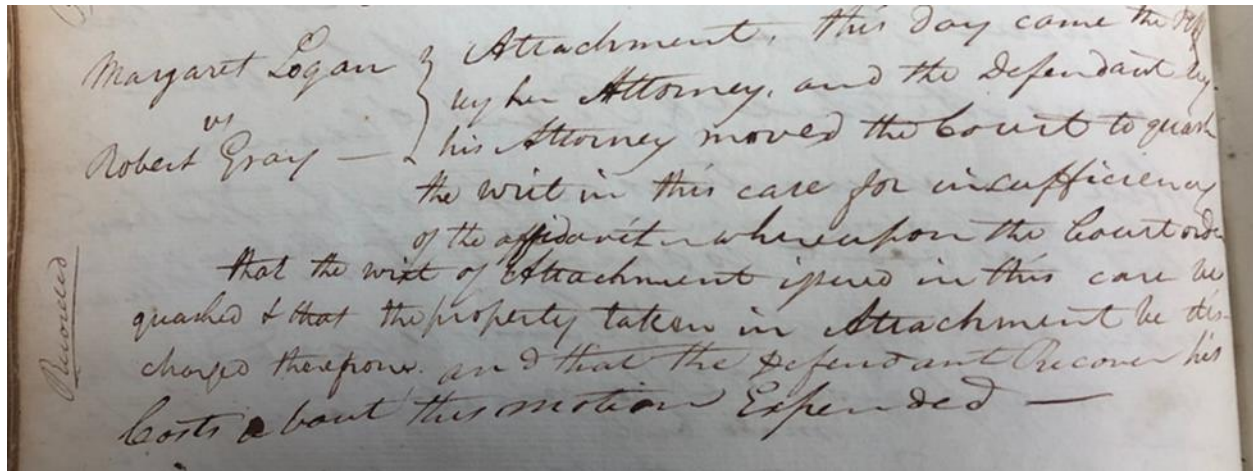 Margaret Logan } Attachment, this day came the Plff
vs
by her Attorney, and the Defendant by
Robert Gray — his Attorney moved the Court to quash
the writ in this case for insufficiency
of the affidavit whereupon the Court order
that the writ of Attachment issued in this case be
quashed & that the property taken in Attachment be dis-
charged therefrom. and that the Defendant Recover his
Costs about this motion Expended —
Recorded